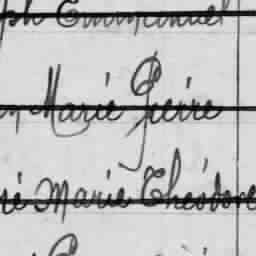 ph Emmanuel
Marie Pierre
ré Marie Théodore